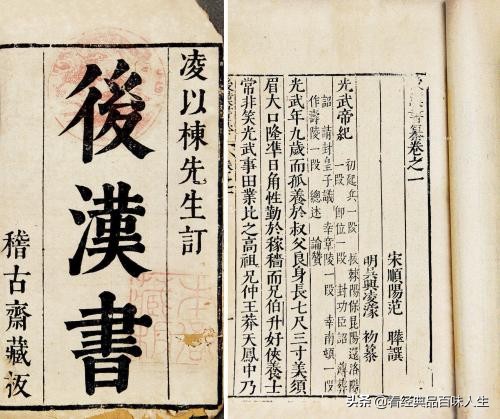 凌以棟先生訂
後漢書
稽古齋藏板
後漢書纂卷之一
宋順陽范 曄譔
明吳興凌濛 初纂
光武帝紀
初起兵一段
長棘陽保昆陽還洛陽
一段 即位一段 封功臣詔 薄葬
詔 請封皇子議 幸章陵一段 幸南頓一段
作壽陵一段 總述 論贊
光武年九歲而孤養於叔父良身長七尺三寸美須
眉大口隆準日角性勤於稼穡而兄伯升好俠養士
常非笑光武事田業比之高祖兄仲王莽天鳳中乃
头条 @看经典品百味人生